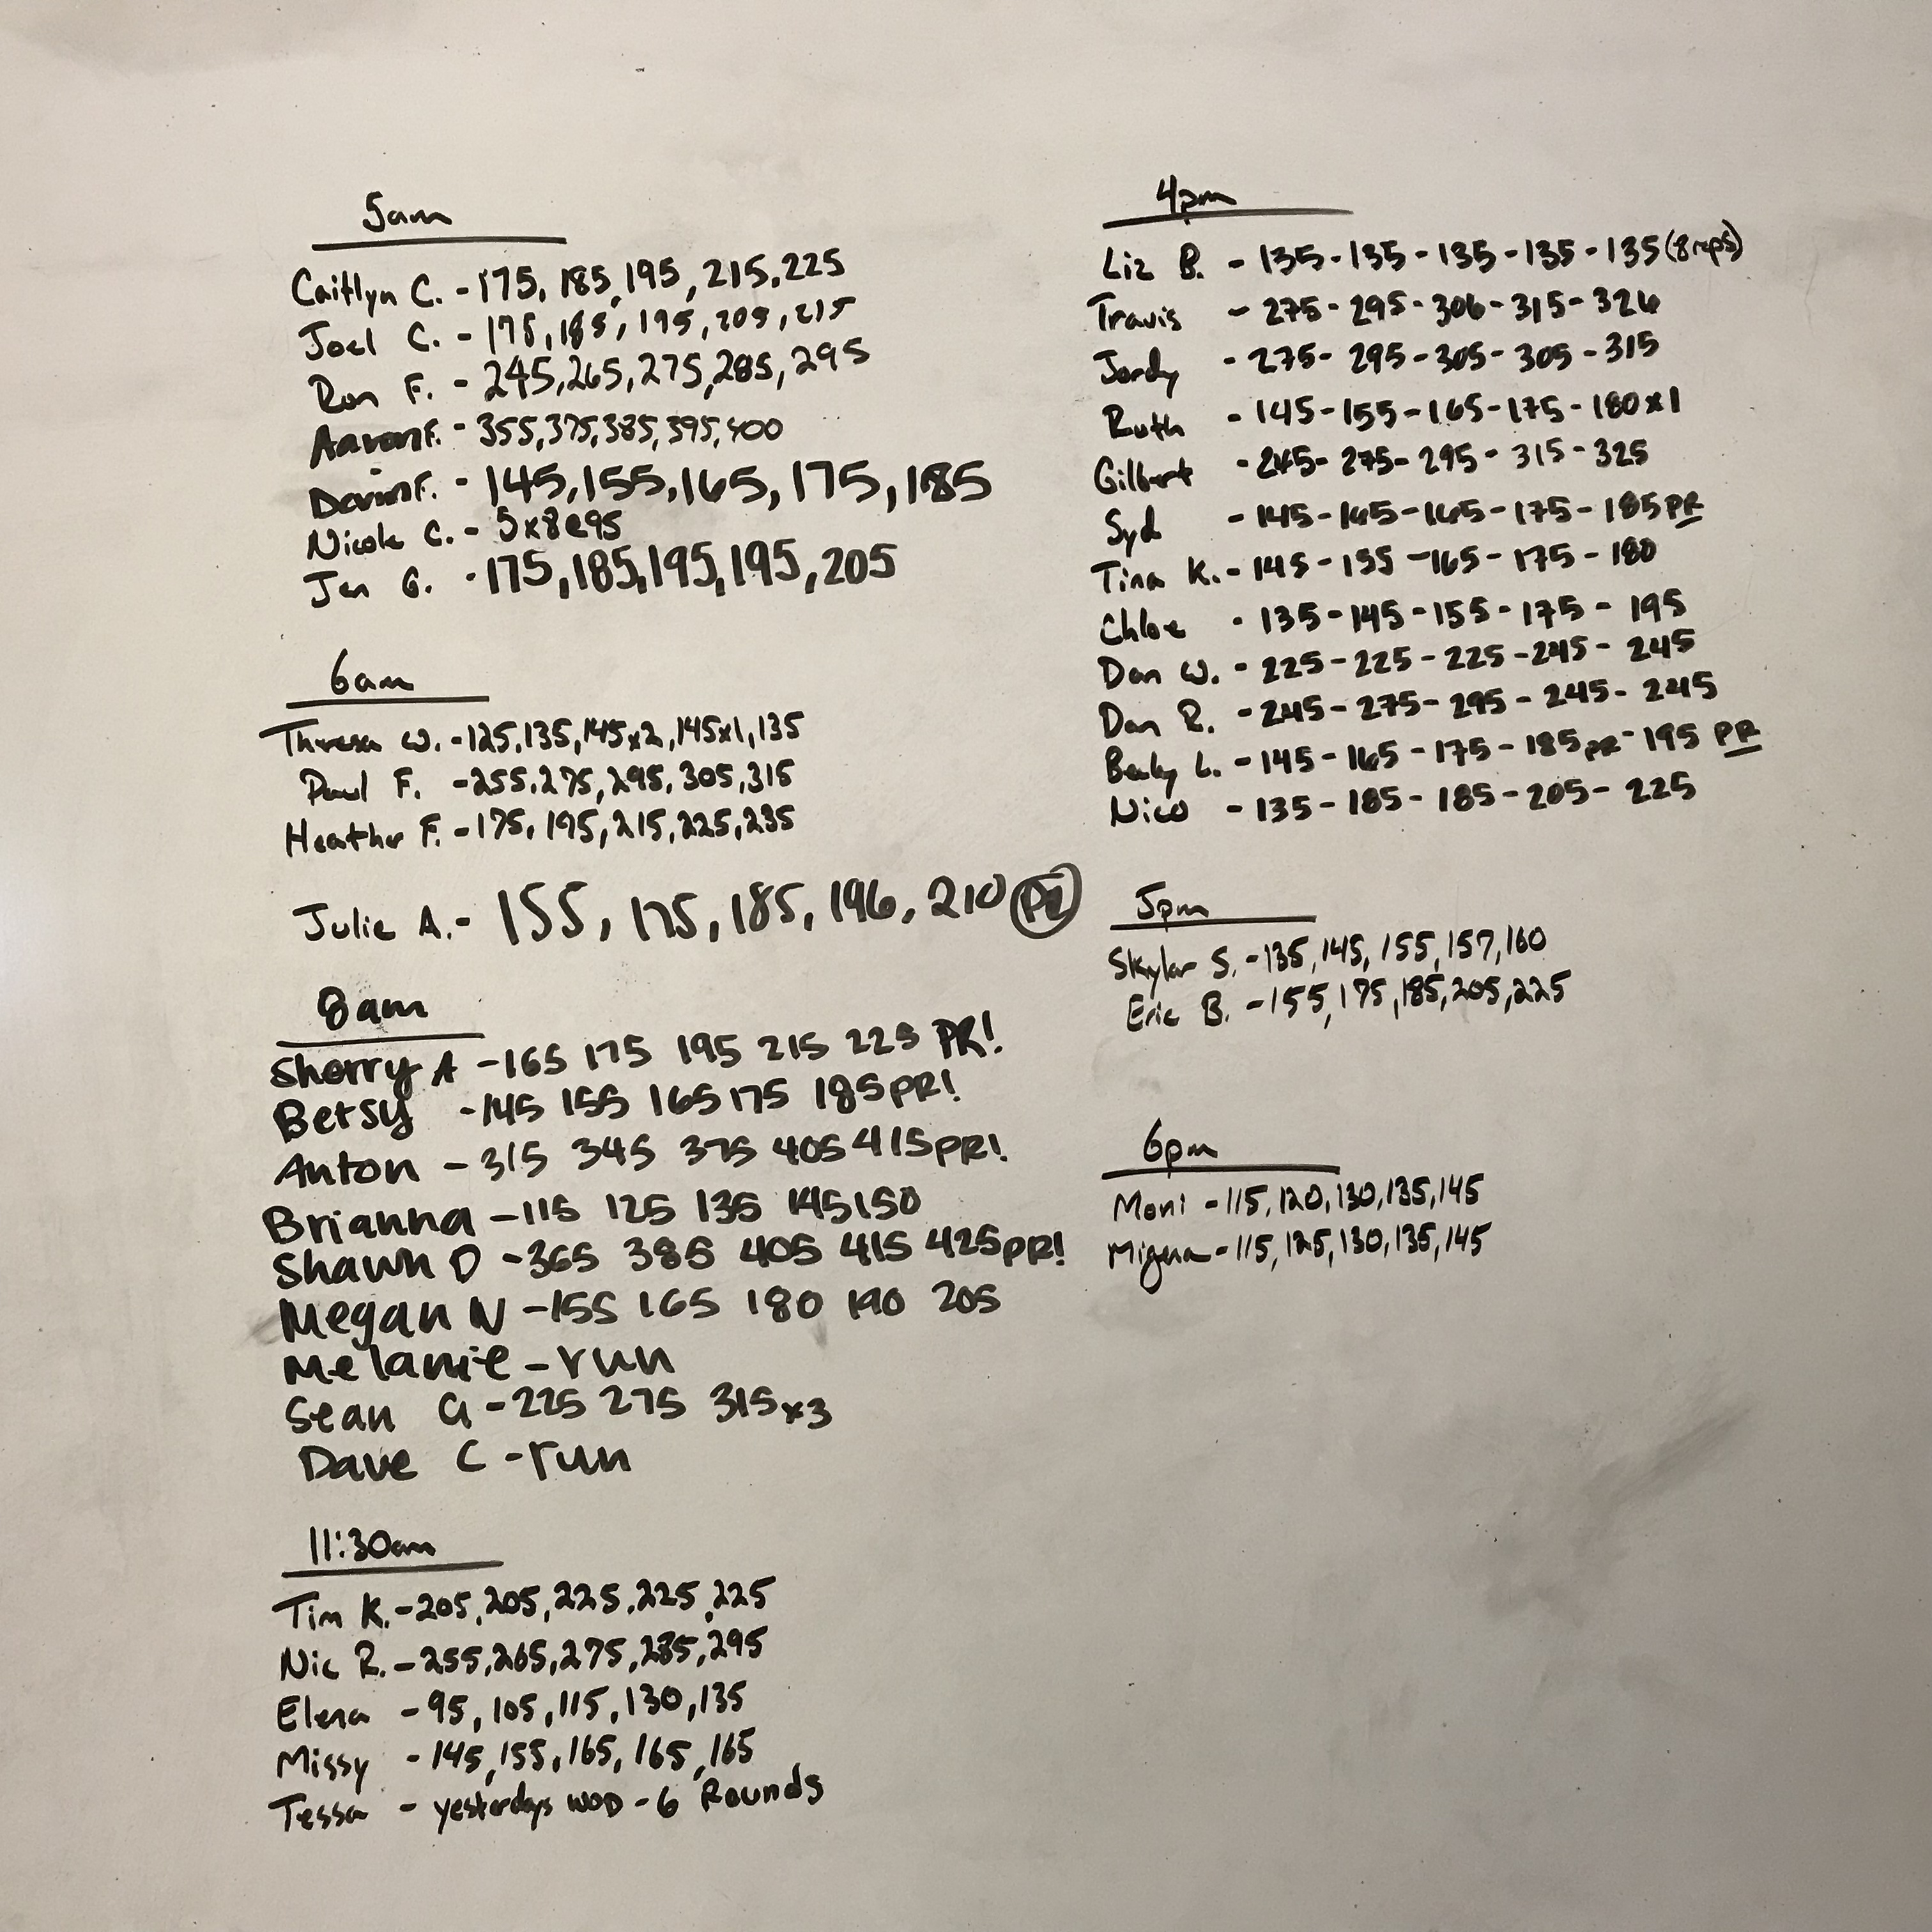 5am
Caitlyn C. - 175, 185, 195, 215, 225
Joel C. - 175, 185, 195, 205, 215
Ron F. - 245, 265, 275, 285, 295
Aaron F. - 355, 375, 385, 395, 400
Darin F. - 145, 155, 165, 175, 185
Nicole C. - 5x8@95
Jen G. - 175, 185, 195, 195, 205
6am
Theresa W. - 125, 135, 145x2, 145x1, 135
Paul F. - 255, 275, 295, 305, 315
Heather F. - 175, 195, 215, 225, 235
Julie A. - 155, 175, 185, 196, 210 PR
8am
Sherry A - 165 175 195 215 225 PR!
Betsy - 145 155 165 175 185 PR!
Anton - 315 345 375 405 415 PR!
Brianna - 115 125 135 145 150
Shawn D - 365 385 405 415 425 PR!
Megan N - 155 165 180 190 205
Melanie - run
Sean G - 225 275 315x3
Dave C - run
11:30am
Tim K. - 205, 205, 225, 225, 225
Nic R. - 255, 265, 275, 285, 295
Elena - 95, 105, 115, 130, 135
Missy - 145, 155, 165, 165, 165
Tessa - yesterdays WOD - 6 Rounds
4pm
Liz B. - 135 - 135 - 135 - 135 - 135 (8 reps)
Travis - 275 - 295 - 306 - 315 - 326
Jordy - 275 - 295 - 305 - 305 - 315
Ruth - 145 - 155 - 165 - 175 - 180x1
Gilbert - 245 - 275 - 295 - 315 - 325
Syd - 145 - 165 - 165 - 175 - 185 PR
Tina K. - 145 - 155 - 165 - 175 - 180
Chloe - 135 - 145 - 155 - 175 - 195
Dan W. - 225 - 225 - 225 - 245 - 245
Dan R. - 245 - 275 - 295 - 245 - 245
L. - 145 - 165 - 175 - 185 PR - 195 PR
Nico - 135 - 185 - 185 - 205 - 225
5pm
Skylar S. - 135, 145, 155, 157, 160
Eric B. - 155, 175, 185, 205, 225
6pm
Moni - 115, 120, 130, 135, 145
Migena - 115, 125, 130, 135, 145